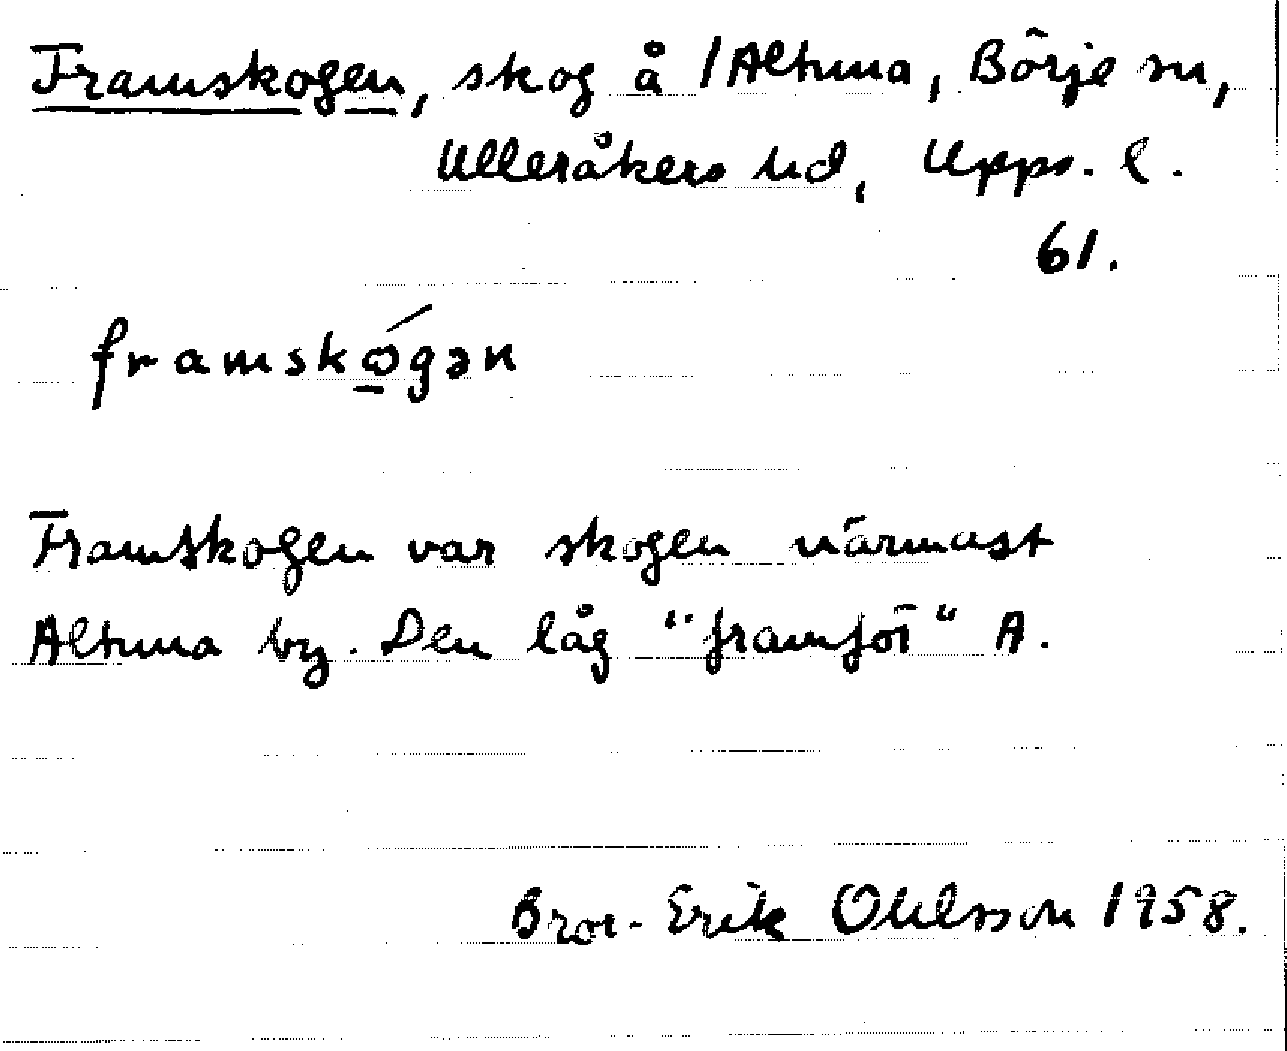 Framskogen, skog å /Altuna, Börje sn,
Ulleråkers hd, Upps. l.
61.
framskǫ́gən
Framskogen var skogen närmast
Altuna by. Den låg "framför" A.
Bror-Erik Ohlsson 1958.